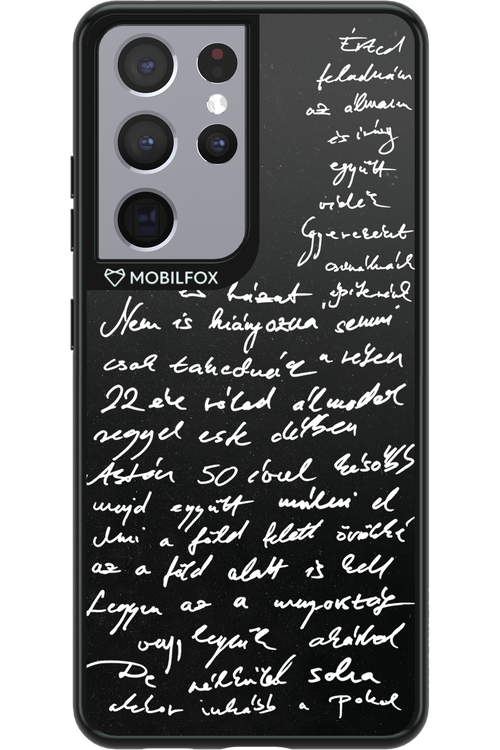 Érted
feladnám
az álmom
és irány
együtt
vidék
Gyerekeket
csinálnánk
és házat építenénk
MOBILFOX
Nem is hiányozna semmi
csak takednék a részem
22 éve rólad álmodok
reggel este délben
Aztán 50 évvel később
majd együtt múlni el
Ami a föld felett örökké
az a föld alatt is kell
Legyen az a mennyország
vagy legyünk akárhol
De nélküled soha
akkor inkább a pokol